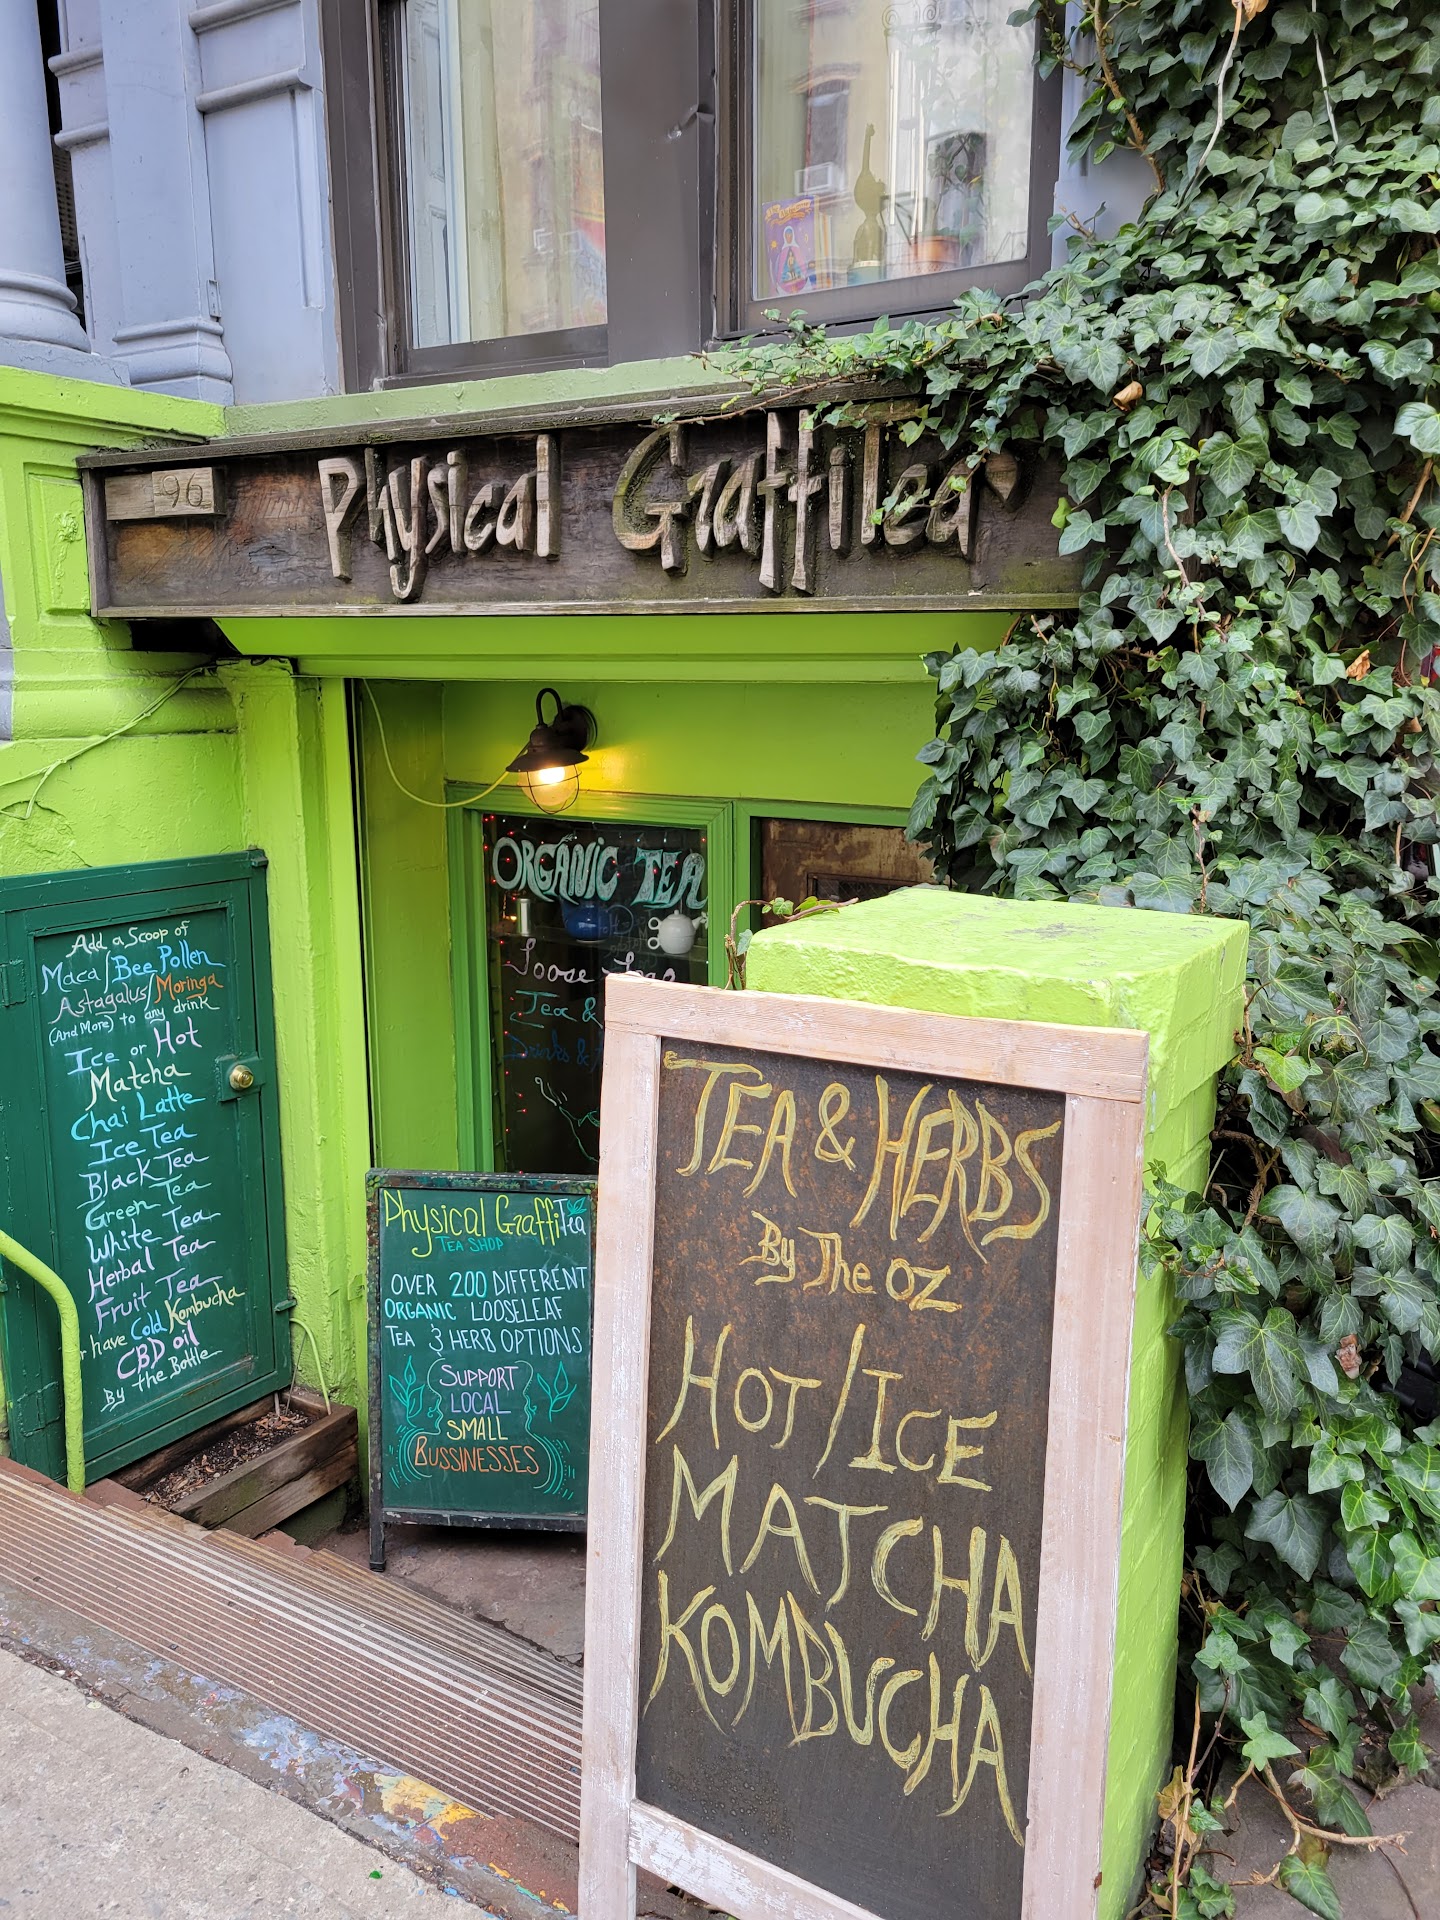 96
Physical GraffiTea
Add a Scoop of
Maca/Bee Pollen
Astagalus/Moringa
(And More) to any drink
Ice or Hot
Matcha
Chai Latte
Ice Tea
Black Tea
Green Tea
White Tea
Herbal Tea
Fruit Tea
have Cold Kombucha
CBD oil
By the Bottle
ORGANIC TEA
Loose
Tea &
Drinks &
Physical GraffiTea
TEA SHOP
OVER 200 DIFFERENT
ORGANIC LOOSELEAF
TEA & HERB OPTIONS
SUPPORT
LOCAL
SMALL
BUSSINESSES
TEA & HERBS
By The OZ
HOT/ICE
MATCHA
KOMBUCHA